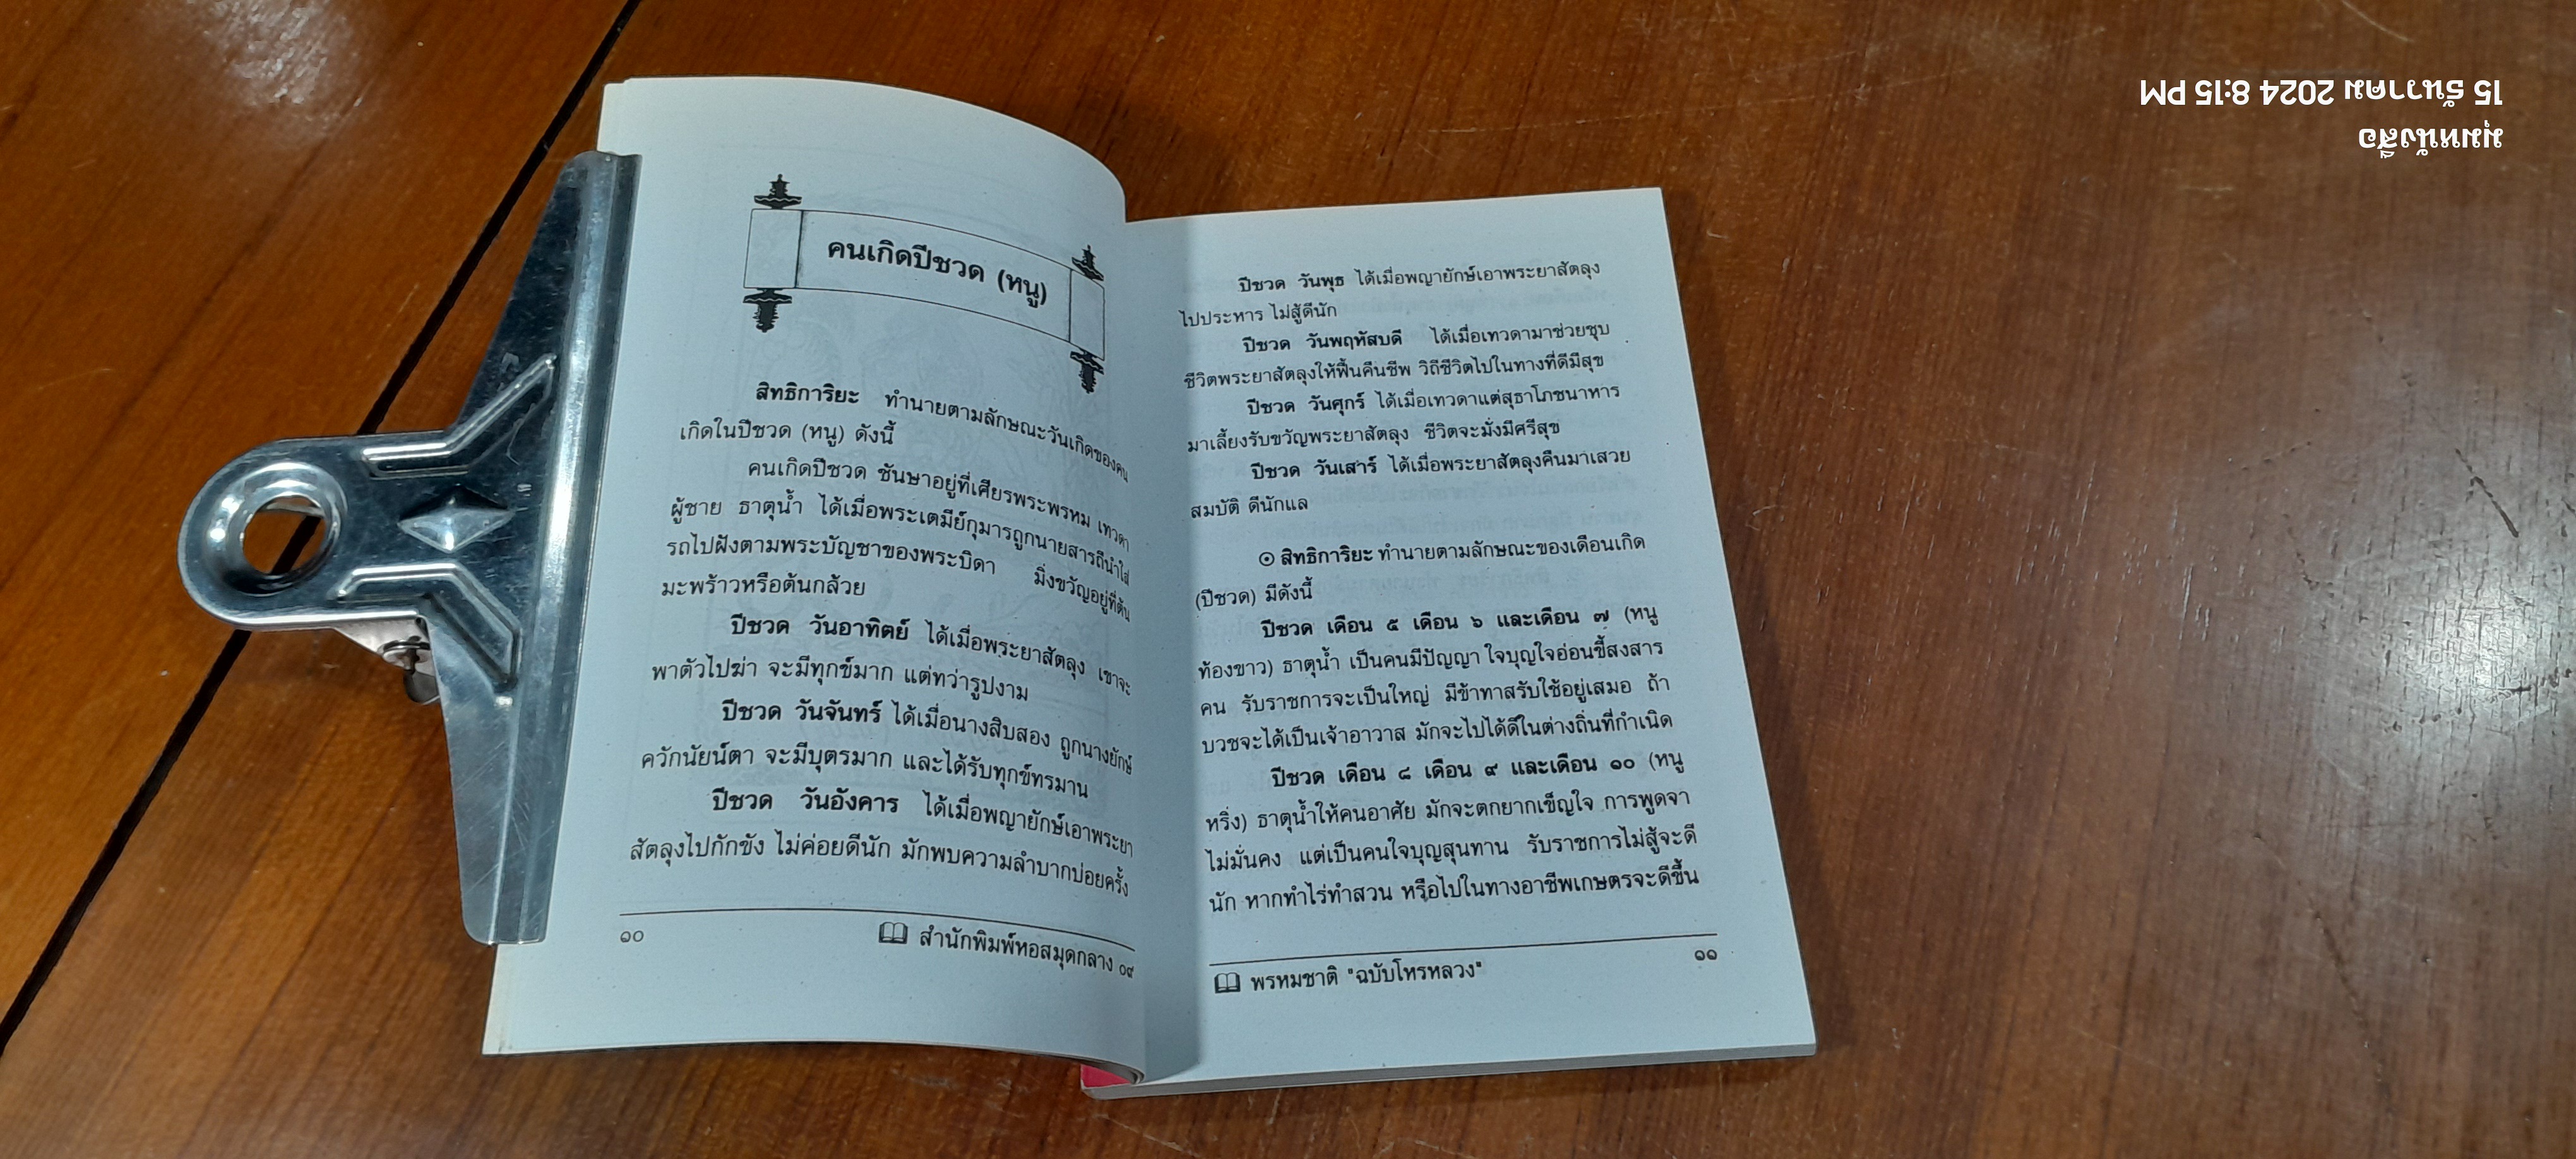 คนเกิดปีชวด (หนู)
สิทธิการิยะ ทำนายตามลักษณะวันเกิดของคน
เกิดในปีชวด (หนู) ดังนี้
คนเกิดปีชวด ชันษาอยู่ที่เศียรพระพรหม เทวดา
ผู้ชาย ธาตุน้ำ ได้เมื่อพระเตมีย์กุมารถูกนายสารถีนำใส่
รถไปฝังตามพระบัญชาของพระบิดา มิ่งขวัญอยู่ที่ต้น
มะพร้าวหรือต้นกล้วย
ปีชวด วันอาทิตย์ ได้เมื่อพระยาสัตลุง เขาจะ
พาตัวไปฆ่า จะมีทุกข์มาก แต่ทว่ารูปงาม
ปีชวด วันจันทร์ ได้เมื่อนางสิบสอง ถูกนางยักษ์
ควักนัยน์ตา จะมีบุตรมาก และได้รับทุกข์ทรมาน
ปีชวด วันอังคาร ได้เมื่อพญายักษ์เอาพระยา
สัตลุงไปกักขัง ไม่ค่อยดีนัก มักพบความลำบากบ่อยครั้ง
๑๐ สำนักพิมพ์หอสมุดกลาง ๐๙
ปีชวด วันพุธ ได้เมื่อพญายักษ์เอาพระยาสัตลุง
ไปประหาร ไม่สู้ดีนัก
ปีชวด วันพฤหัสบดี ได้เมื่อเทวดามาช่วยชุบ
ชีวิตพระยาสัตลุงให้ฟื้นคืนชีพ วิถีชีวิตไปในทางที่ดีมีสุข
ปีชวด วันศุกร์ ได้เมื่อเทวดาแต่สุธาโภชนาหาร
มาเลี้ยงรับขวัญพระยาสัตลุง ชีวิตจะมั่งมีศรีสุข
ปีชวด วันเสาร์ ได้เมื่อพระยาสัตลุงคืนมาเสวย
สมบัติ ดีนักแล
⊙ สิทธิการิยะ ทำนายตามลักษณะของเดือนเกิด
(ปีชวด) มีดังนี้
ปีชวด เดือน ๕ เดือน ๖ และเดือน ๗ (หนู
ท้องขาว) ธาตุน้ำ เป็นคนมีปัญญา ใจบุญใจอ่อนขี้สงสาร
คน รับราชการจะเป็นใหญ่ มีข้าทาสรับใช้อยู่เสมอ ถ้า
บวชจะได้เป็นเจ้าอาวาส มักจะไปได้ดีในต่างถิ่นที่กำเนิด
ปีชวด เดือน ๘ เดือน ๙ และเดือน ๑๐ (หนู
หริ่ง) ธาตุน้ำให้คนอาศัย มักจะตกยากเข็ญใจ การพูดจา
ไม่มั่นคง แต่เป็นคนใจบุญสุนทาน รับราชการไม่สู้จะดี
นัก หากทำไร่ทำสวน หรือไปในทางอาชีพเกษตรจะดีขึ้น
พรหมชาติ "ฉบับโหรหลวง" ๑๑
มุมหนังสือ
15 ธันวาคม 2024 8:15 PM